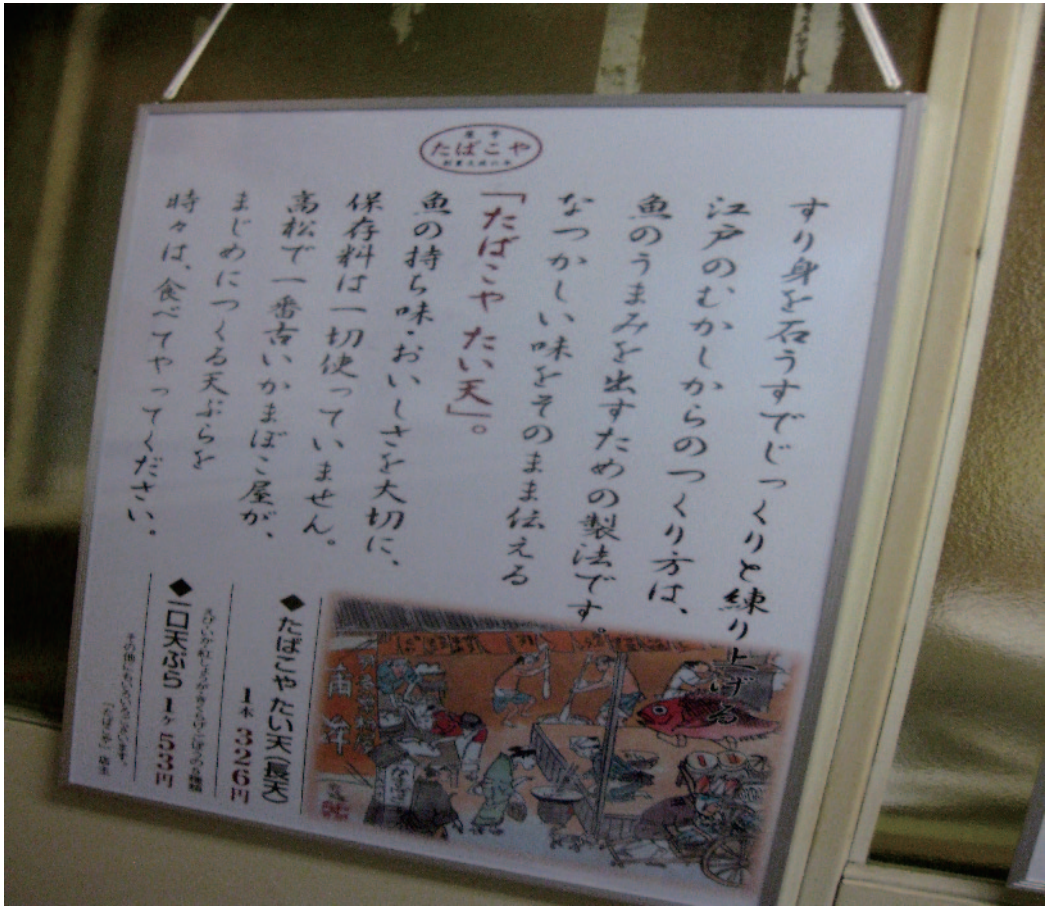 たばこや
すり身を石うすでじっくりと練り上げる
江戸のむかしからのつくり方は、
魚のうまみを出すための製法です。
なつかしい味をそのまま伝える
「たばこや たい天」。
魚の持ち味・おいしさを大切に、
保存料は一切使っていません。
高松で一番古いかまぼこ屋が、
まじめにつくる天ぷらを
時々は、食べてやってください。
◆たばこや たい天(長天)
1本 326円
◆一口天ぷら 1ケ 53円
その他にもいろいろございます。
「たばこや」店主